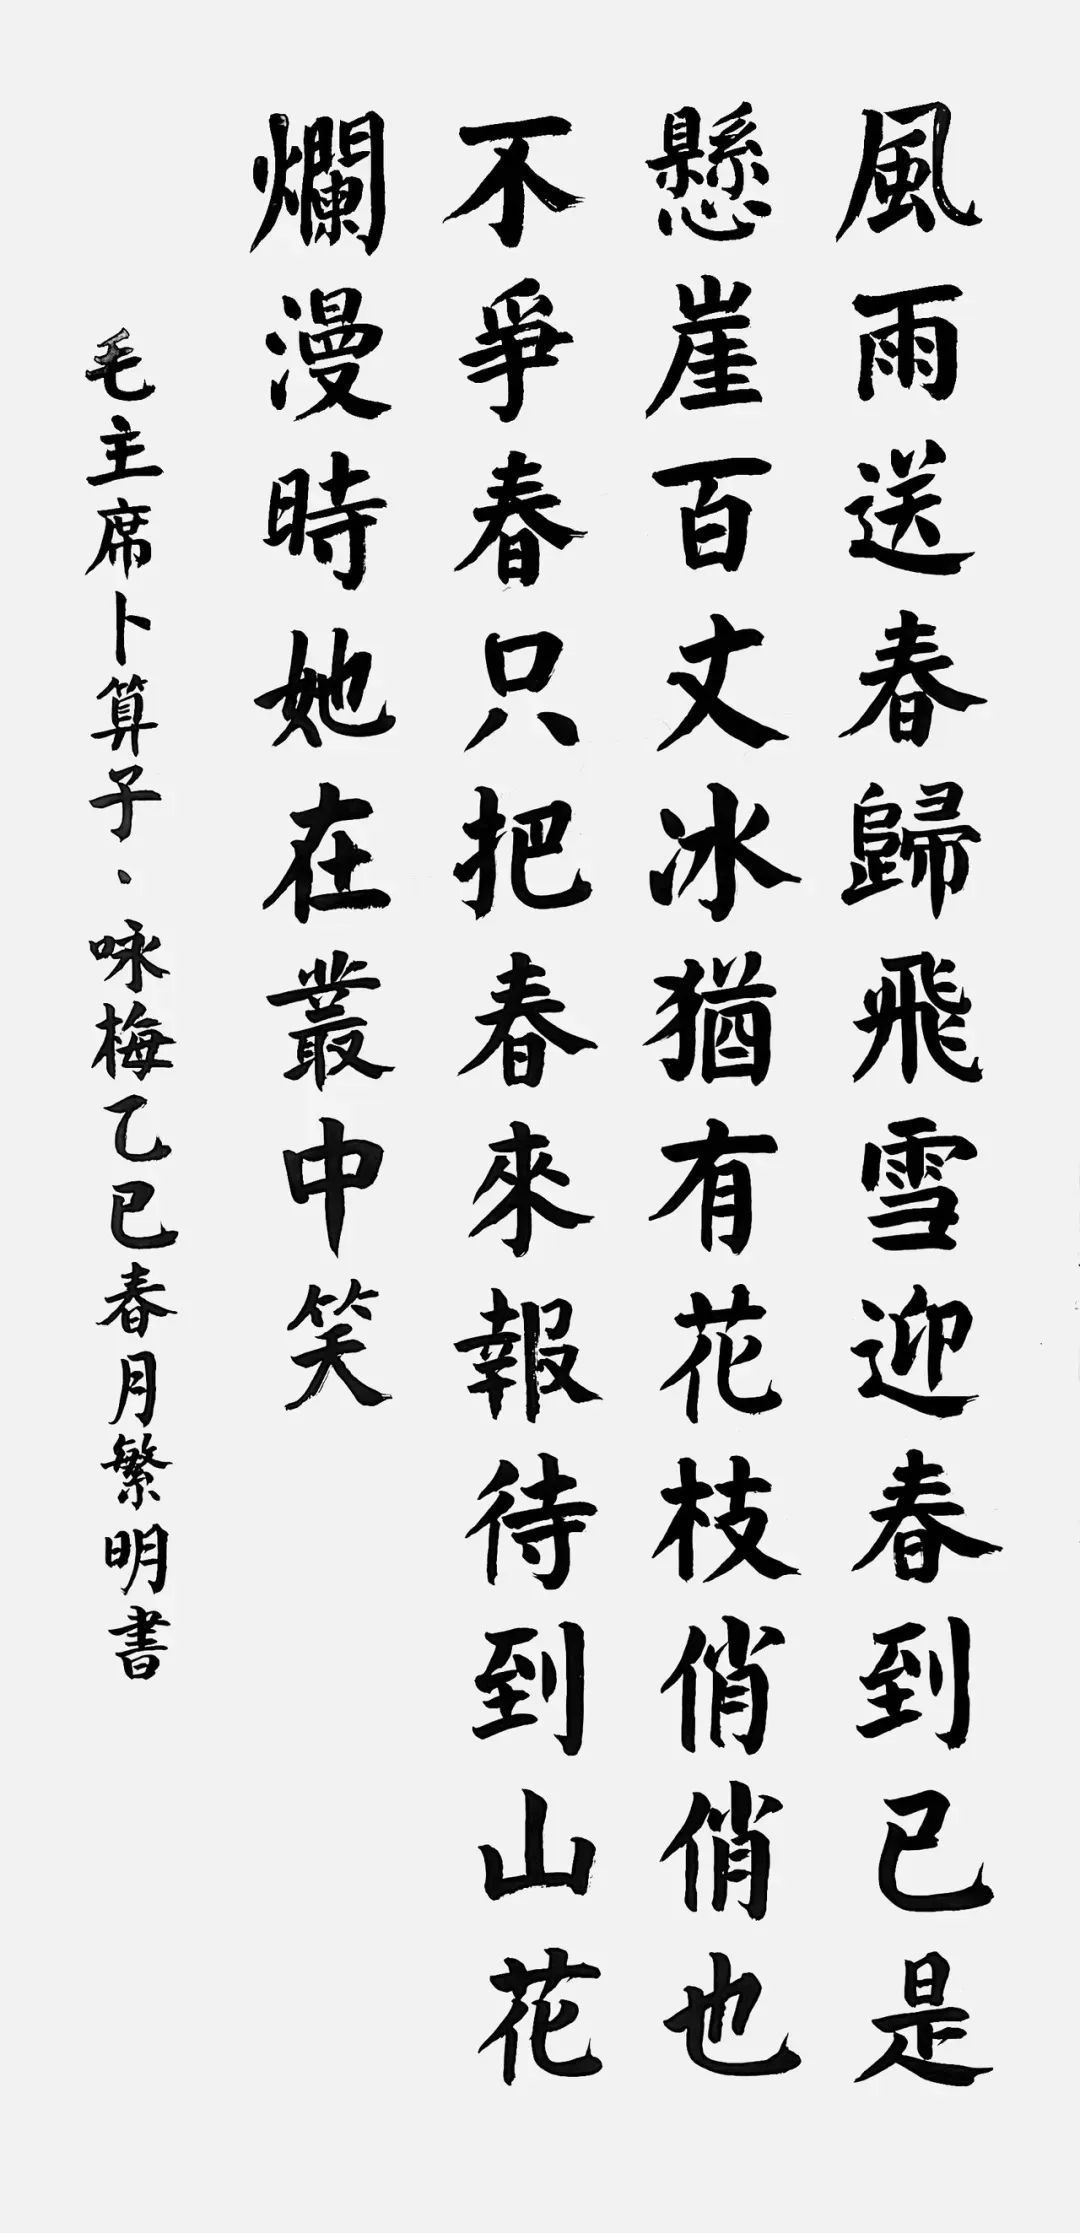 風雨送春歸飛雪迎春到已是
懸崖百丈冰猶有花枝俏俏也
不爭春只把春來報待到山花
爛漫時她在叢中笑
毛主席卜算子·咏梅乙巳春月繁明書